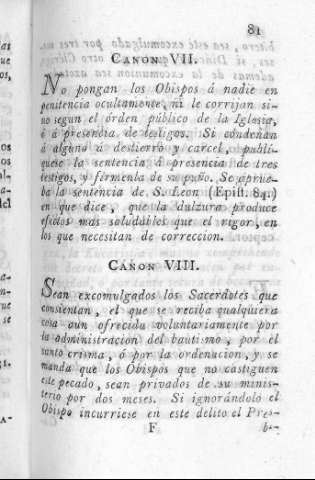 81
CANON VII.
No pongan los Obispos á nadie en
penitencia ocultamente, ni le corrijan si-
no segun el órden público de la Iglesia,
ó á presencia de testigos. Si condeñan
á alguno á destierro y carcel, publi-
quese la sentencia á presencia de tres
testigos, y firmenla de su puño. Se aprue-
ba la sentencia de S. Leon (Epist. 84.)
en que dice, que la dulzura produce
efectos mas saludables que el rigor, en
los que necesitan de correccion.
CANON VIII.
Sean excomulgados los Sacerdotes que
consientan, el que se reciba qualquiera
cosa aun ofrecida voluntariamente por
la administracion del bautismo, por el
santo crisma, ó por la ordenacion, y se
manda que los Obispos que no castiguen
este pecado, sean privados de su minis-
terio por dos meses. Si ignorándolo el
Obispo incurriese en este delito el Pres-
F b-